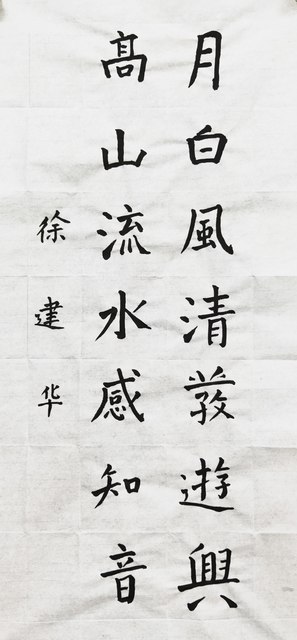 月白風清發遊興
髙山流水感知音
徐建华